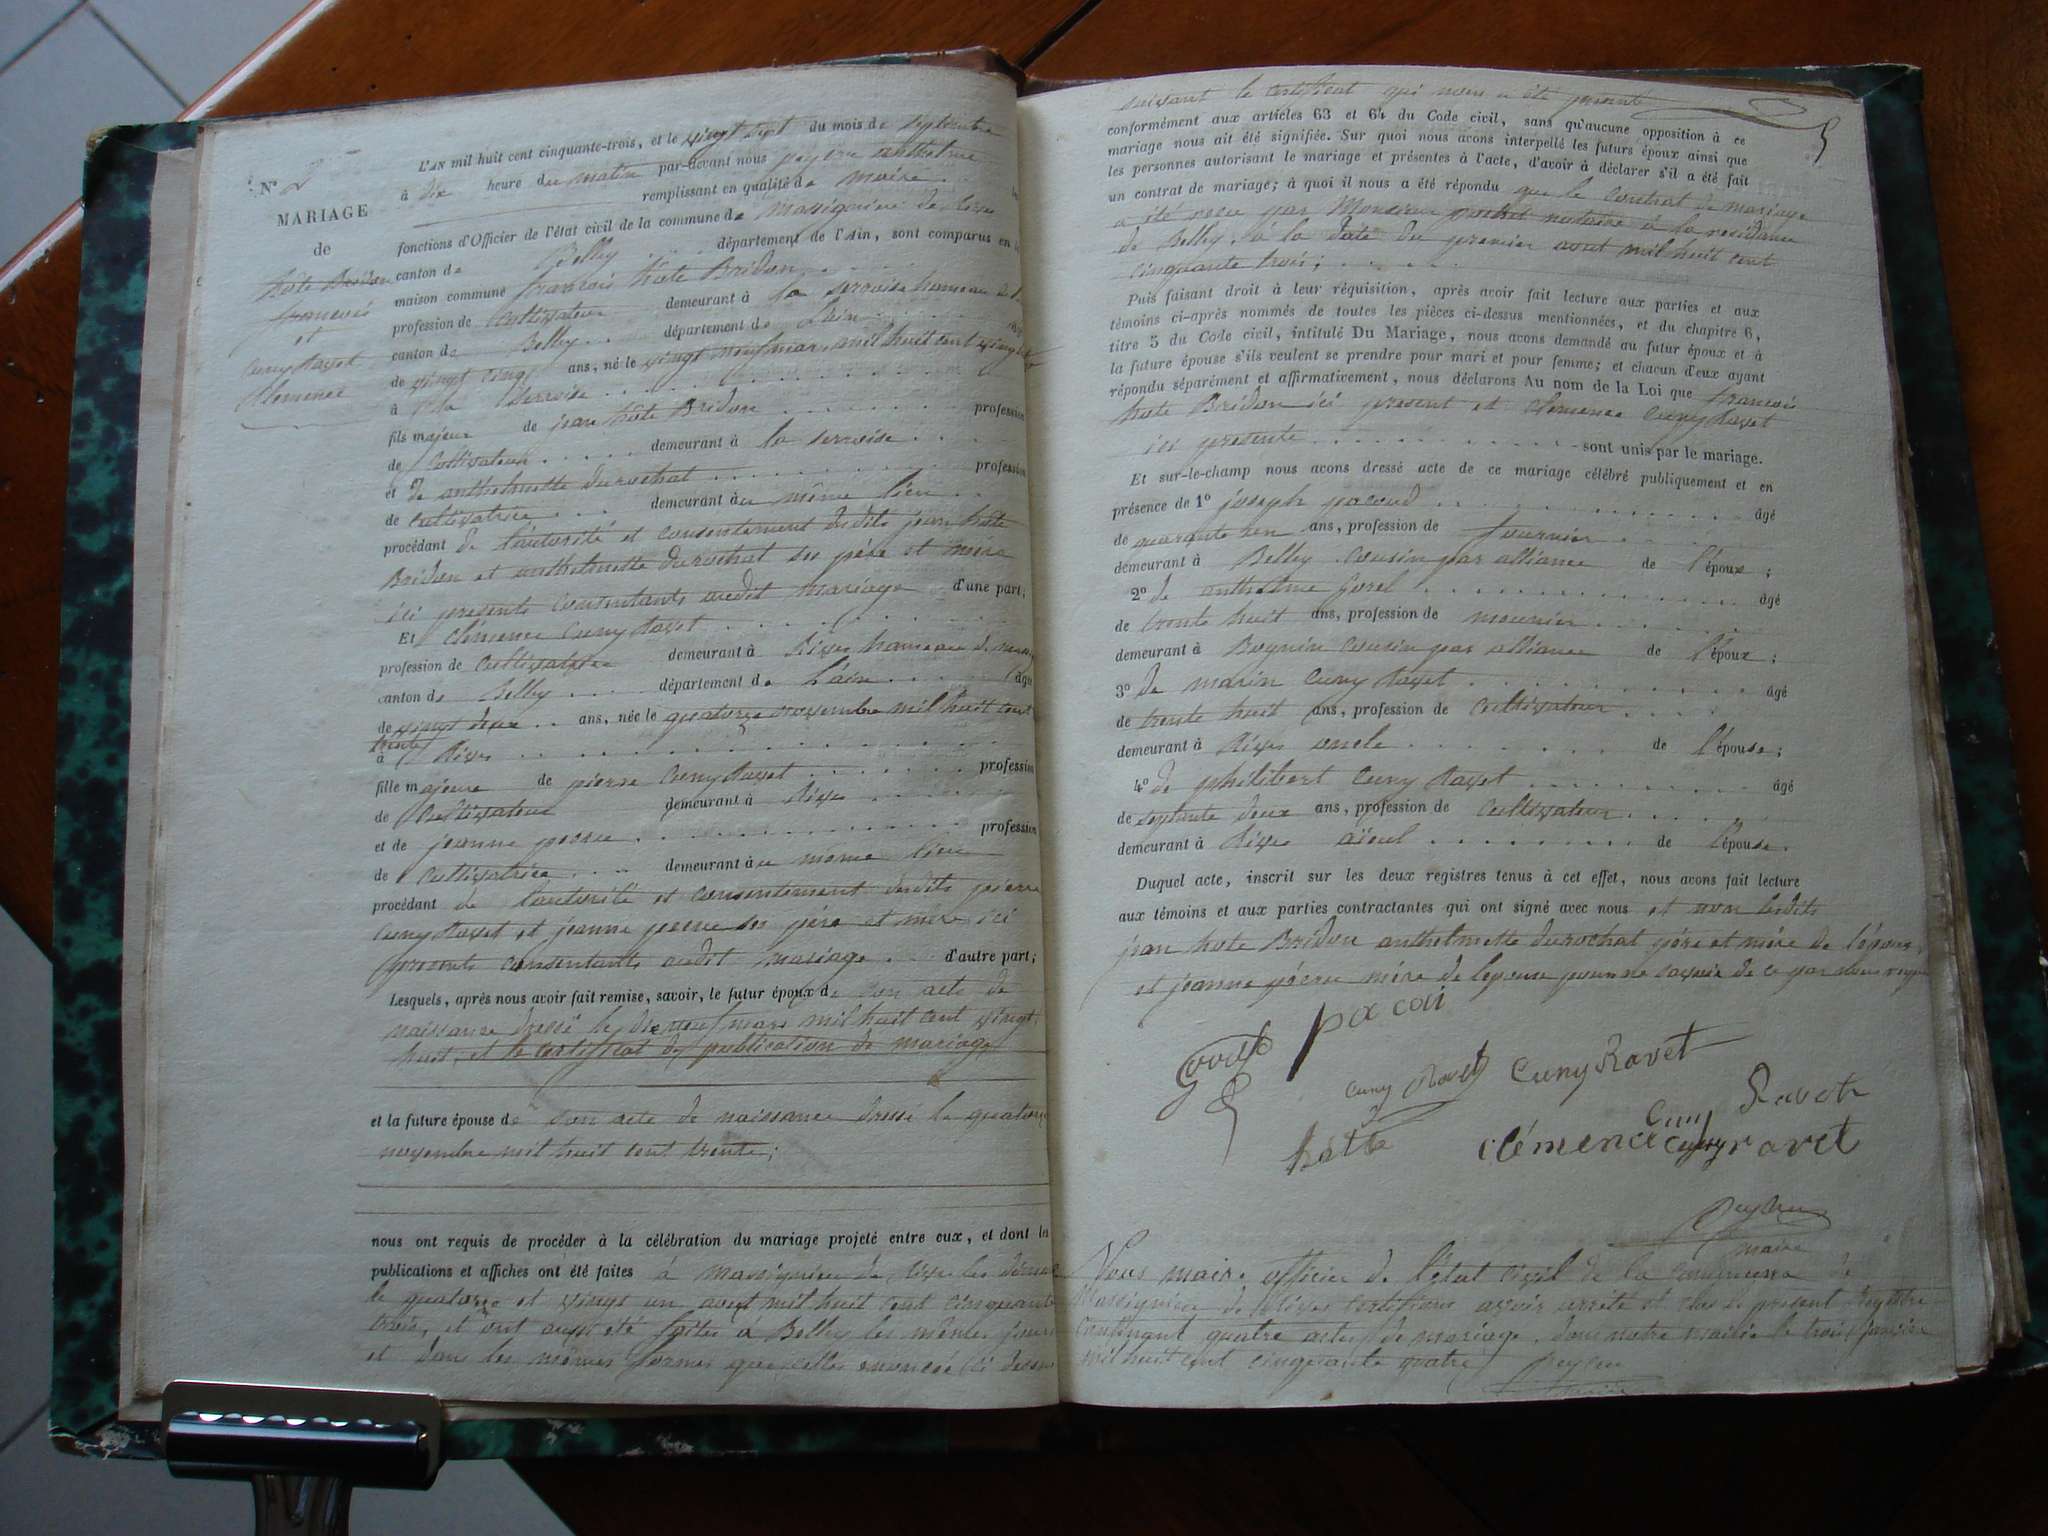 N° 2
MARIAGE
de
hote Bridon
francois
et
Cuny Ravet
Clemence
L'AN mil huit cent cinquante-trois, et le vingt sept du mois de septembre
à dix heure du matin par-devant nous peysru anthelme
remplissant en qualité de maire
fonctions d'Officier de l'état civil de la commune de massignieu de rives
canton de Belley département de l'Ain, sont comparus en la
maison commune francois hote Bridon
profession de cultivateur demeurant à la serroise hameau de
canton de Belley département de Lain
de vingt cinq ans, né le vingt neuf mars mil huit cent vingt
à la Serroise
fils majeur de jean hôte Bridon profession
de cultivateur demeurant à la serroise
et de anthelmette durochat profession
de cultivatrice demeurant au même lieu
procédant de l'autorité et consentement desdits jean hôte
Bridon et anthelmette durochat ses père et mère
ici presents consentants audit mariage d'une part;
Et clémence Cuny Ravet
profession de cultivatrice demeurant à Rives hameau de
canton de Belley département de Lain âgée
de vingt deux ans, née le quatorze novembre mil huit cent
trente
à Rives
fille majeure de pierre Cuny Ravet profession
de Cultivateur demeurant à Rives
et de jeanne profession
de cultivatrice demeurant au même lieu
procédant de l'autorité et consentement desdits pierre
Cuny Ravet et jeanne ses père et mère ici
presents consentants audit mariage d'autre part;
Lesquels, après nous avoir fait remise, savoir, le futur époux de son acte de
naissance dressé le dix neuf mars mil huit cent vingt
huit, et le certificat de publication de mariage
et la future épouse de son acte de naissance dressé le quatorze
novembre mil huit cent trente;
nous ont requis de procéder à la célébration du mariage projeté entre eux, et dont les
publications et affiches ont été faites à massignieu de rives les
le quatorze et vingt un aout mil huit cent cinquante
trois, et ont aussi été faites à Belley les mêmes jours
et dans les mêmes formes que celles enoncés ci dessus
suivant le certificat qui nous a été presenté
5
conformément aux articles 63 et 64 du Code civil, sans qu'aucune opposition à ce
mariage nous ait été signifiée. Sur quoi nous avons interpellé les futurs époux ainsi que
les personnes autorisant le mariage et présentes à l'acte, d'avoir à déclarer s'il a été fait
un contrat de mariage; à quoi il nous a été répondu que le contrat de mariage
a été recu par Monsieur notaire à la residence
de Belley, à la date du premier aout mil huit cent
cinquante trois;
Puis faisant droit à leur réquisition, après avoir fait lecture aux parties et aux
témoins ci-après nommés de toutes les pièces ci-dessus mentionnées, et du chapitre 6,
titre 5 du Code civil, intitulé Du Mariage, nous avons demandé au futur époux et à
la future épouse s'ils veulent se prendre pour mari et pour femme; et chacun d'eux ayant
répondu séparément et affirmativement, nous déclarons Au nom de la Loi que francois
hote Bridon ici present et clemence Cuny Ravet
ici presente sont unis par le mariage.
Et sur-le-champ nous avons dressé acte de ce mariage célébré publiquement et en
présence de 1° joseph pacoud âgé
de quarante un ans, profession de fournier
demeurant à Belley cousin par alliance de l'époux;
2° de anthelme Gorel âgé
de trente huit ans, profession de meunier
demeurant à cousin par alliance de l'époux;
3° de marin Cuny Ravet âgé
de trente huit ans, profession de cultivateur
demeurant à Rives oncle de l'épouse;
4° de philibert Cuny Ravet âgé
de septante deux ans, profession de cultivateur
demeurant à Rives aïeul de l'épouse.
Duquel acte, inscrit sur les deux registres tenus à cet effet, nous avons fait lecture
aux témoins et aux parties contractantes qui ont signé avec nous et non lesdits
jean hote Bridon anthelmette durochat père et mère de l'époux,
et jeanne mère de lepouse pour ne savoir de ce par nous requis
pacou
Cuny Ravet Cuny Ravet
Cuny Ravet
hotte clémence cuny ravet
maire
Nous maire officier de l'état civil de la commune de
Massignieu de Rives certifions avoir arrêté et clos le présent Registre
contenant quatre actes de mariage. dans notre mairie le trois janvier
mil huit cent cinquante quatre